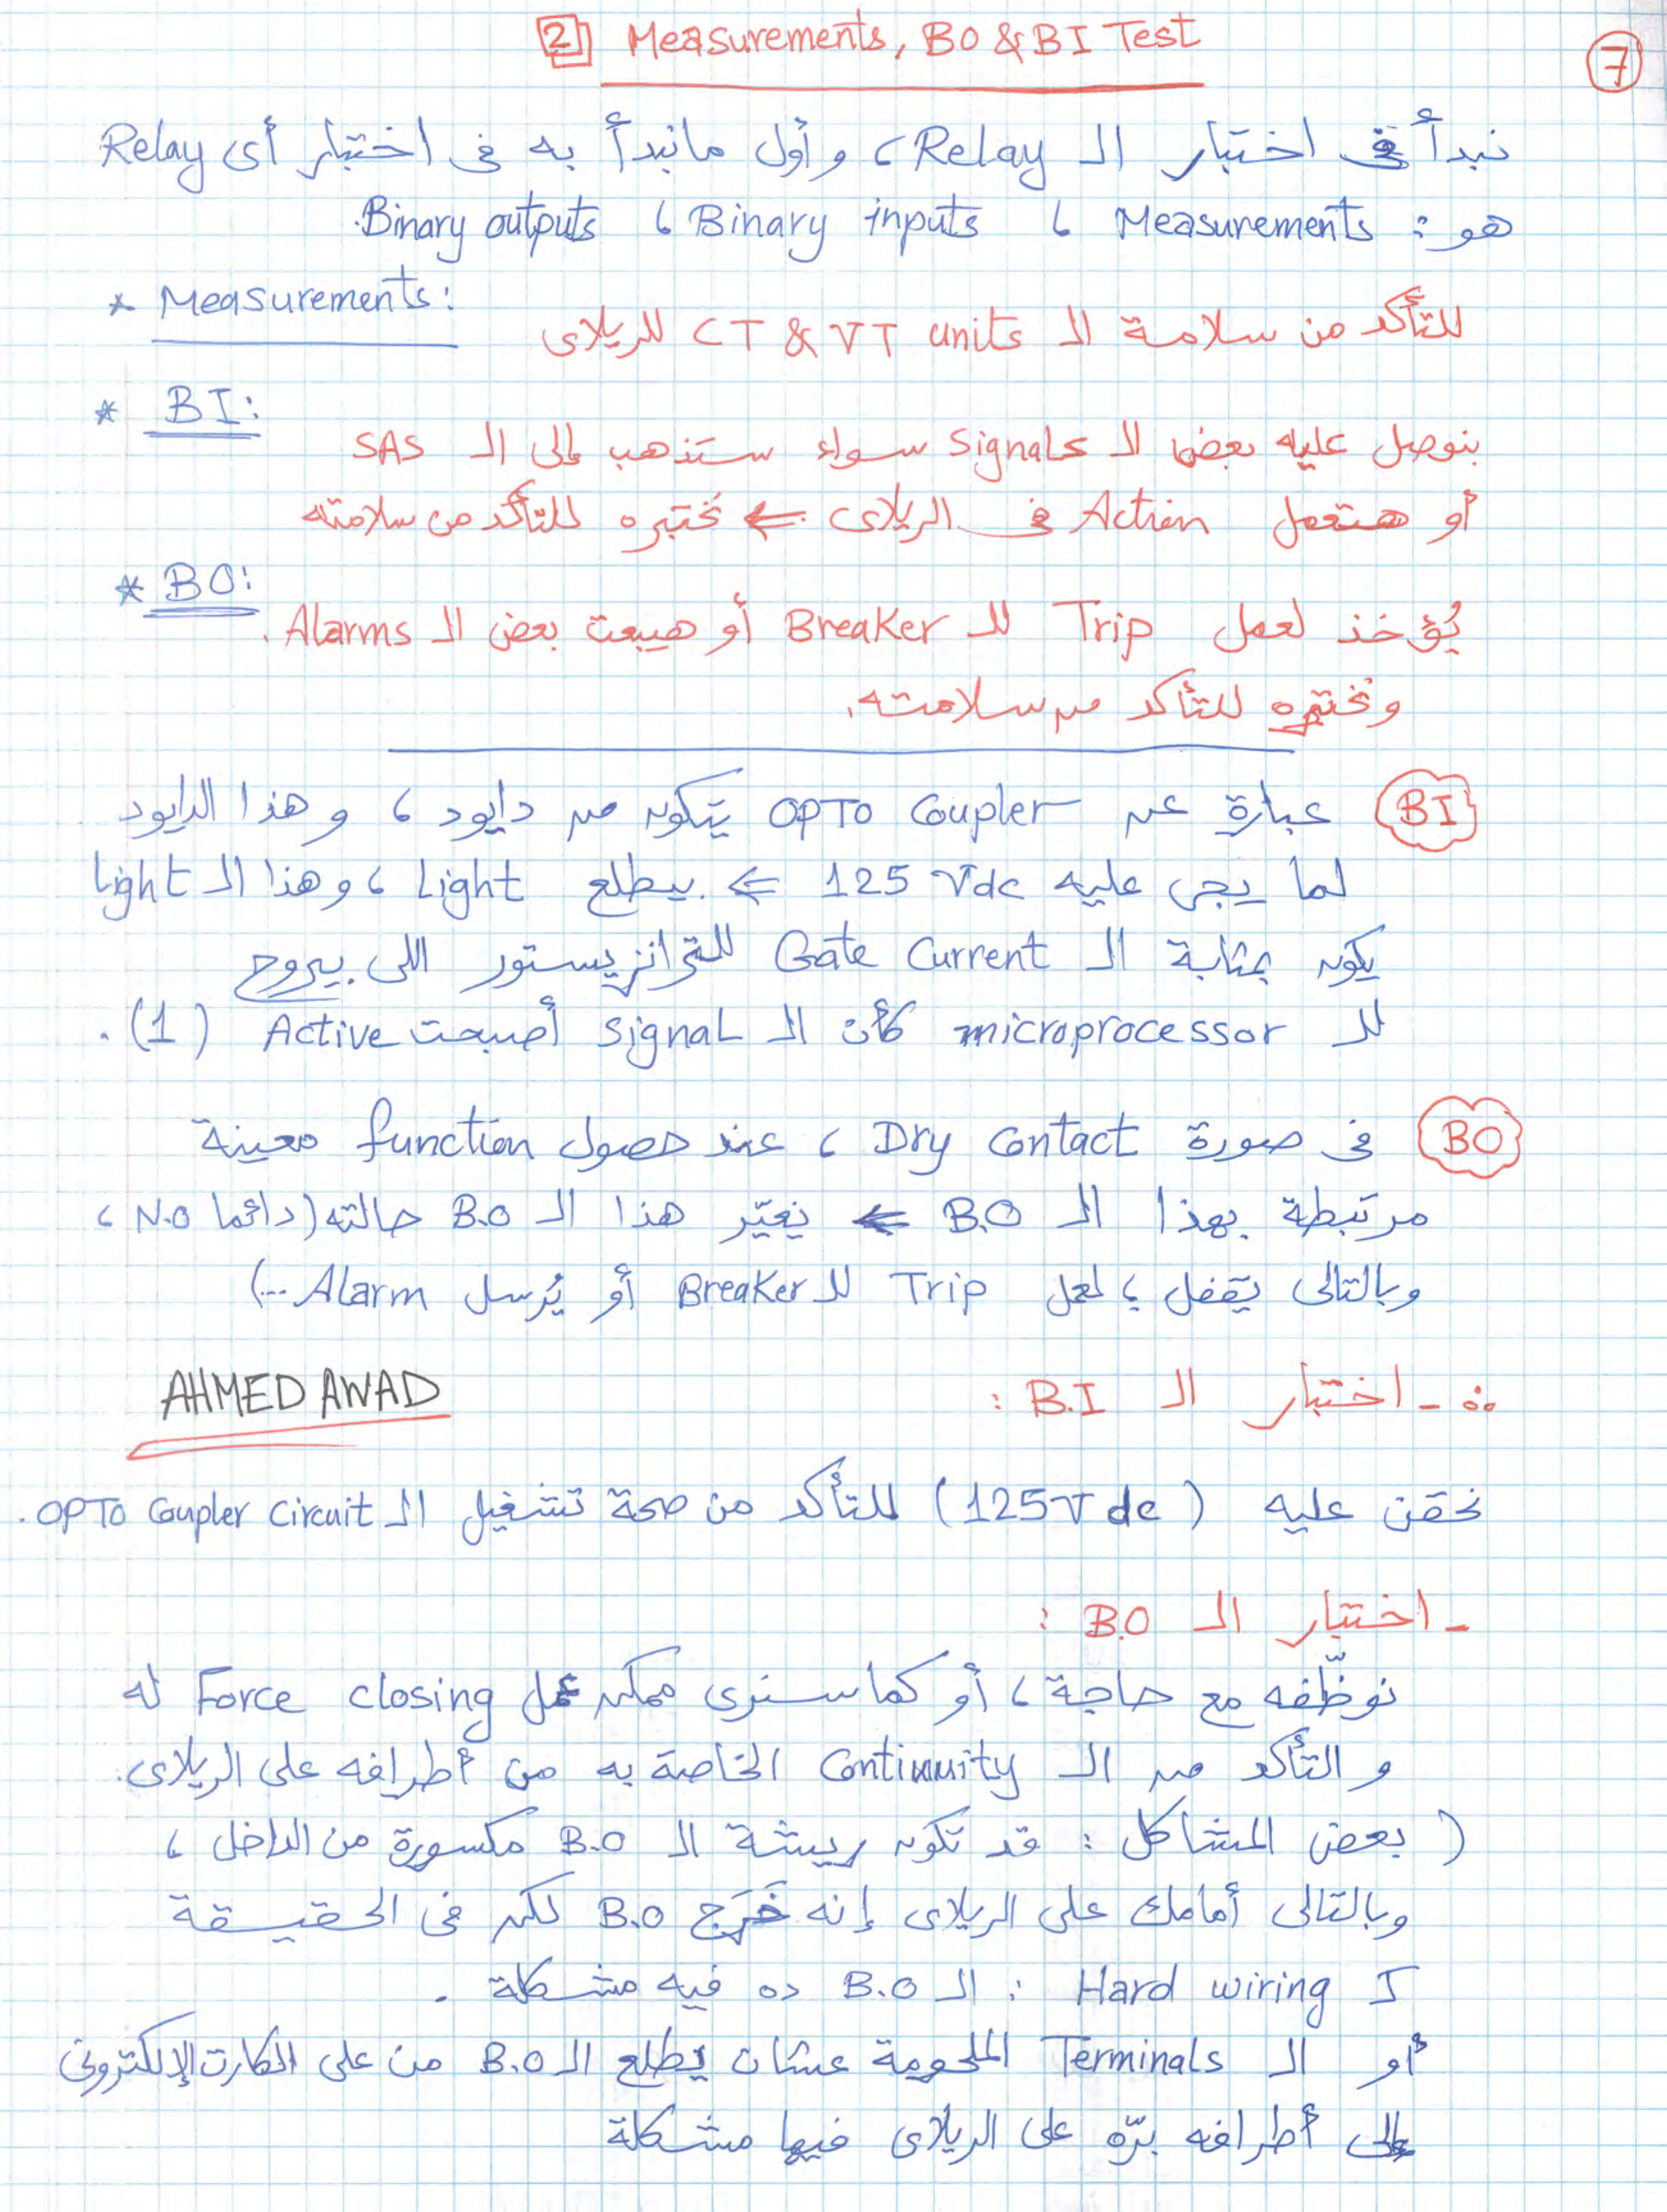 [2] Measurements, BO & BI Test
7
نبدأ فى اختبار الـ Relay ، وأول مانبدأ به فى اختبار أى Relay
هو : Measurements ، Binary inputs ، Binary outputs.
* Measurements:
للتأكد من سلامة الـ CT & VT units للريلاى
* BI:
بنوصل عليه بعض الـ Signals سواء ستذهب إلى الـ SAS
أو هتعمل Action فى الريلاى ⇐ نختبره للتأكد من سلامته
* BO:
يُؤخذ لعمل Trip للـ Breaker أو هيبعت بعض الـ Alarms .
ونختبره للتأكد من سلامته.
BI عبارة عن OPTO Coupler يتكون من دايود ، وهذا الدايود
لما يجى عليه 125 Vdc ⇐ بيطلع Light ، وهذا الـ Light
يكون بمثابة الـ Gate Current للترانزيستور اللى بيروح
للـ microprocessor كأن الـ Signal أصبحت Active (1) .
BO فى صورة Dry Contact ، عند حصول function معينة
مرتبطة بهذا الـ B.O ⇐ يغيّر هذا الـ B.O حالته (دائما N.O ،
وبالتالى يقفل ؛ لعمل Trip للـ Breaker أو يُرسل Alarm ...)
AHMED AWAD
∴ - اختبار الـ B.I :
نحقن عليه (125V dc) للتأكد من صحة تشغيل الـ OPTO Coupler Circuit .
- اختبار الـ B.O :
نوظّفه مع حاجة ، أو كما سنرى ممكن عمل Force closing له
و التأكد من الـ Continuity الخاصة به من أطرافه على الريلاى.
( بعض المشاكل : قد تكون ريشة الـ B.O مكسورة من الداخل ،
وبالتالى أمامك على الريلاى إنه خَرَج B.O لكن فى الحقيقة
كـ Hard wiring : الـ B.O ده فيه مشكلة .
أو الـ Terminals الملحومة عشان يطلع الـ B.O من على الكارت الإلكترونى
إلى أطرافه برّه على الريلاى فيها مشكلة